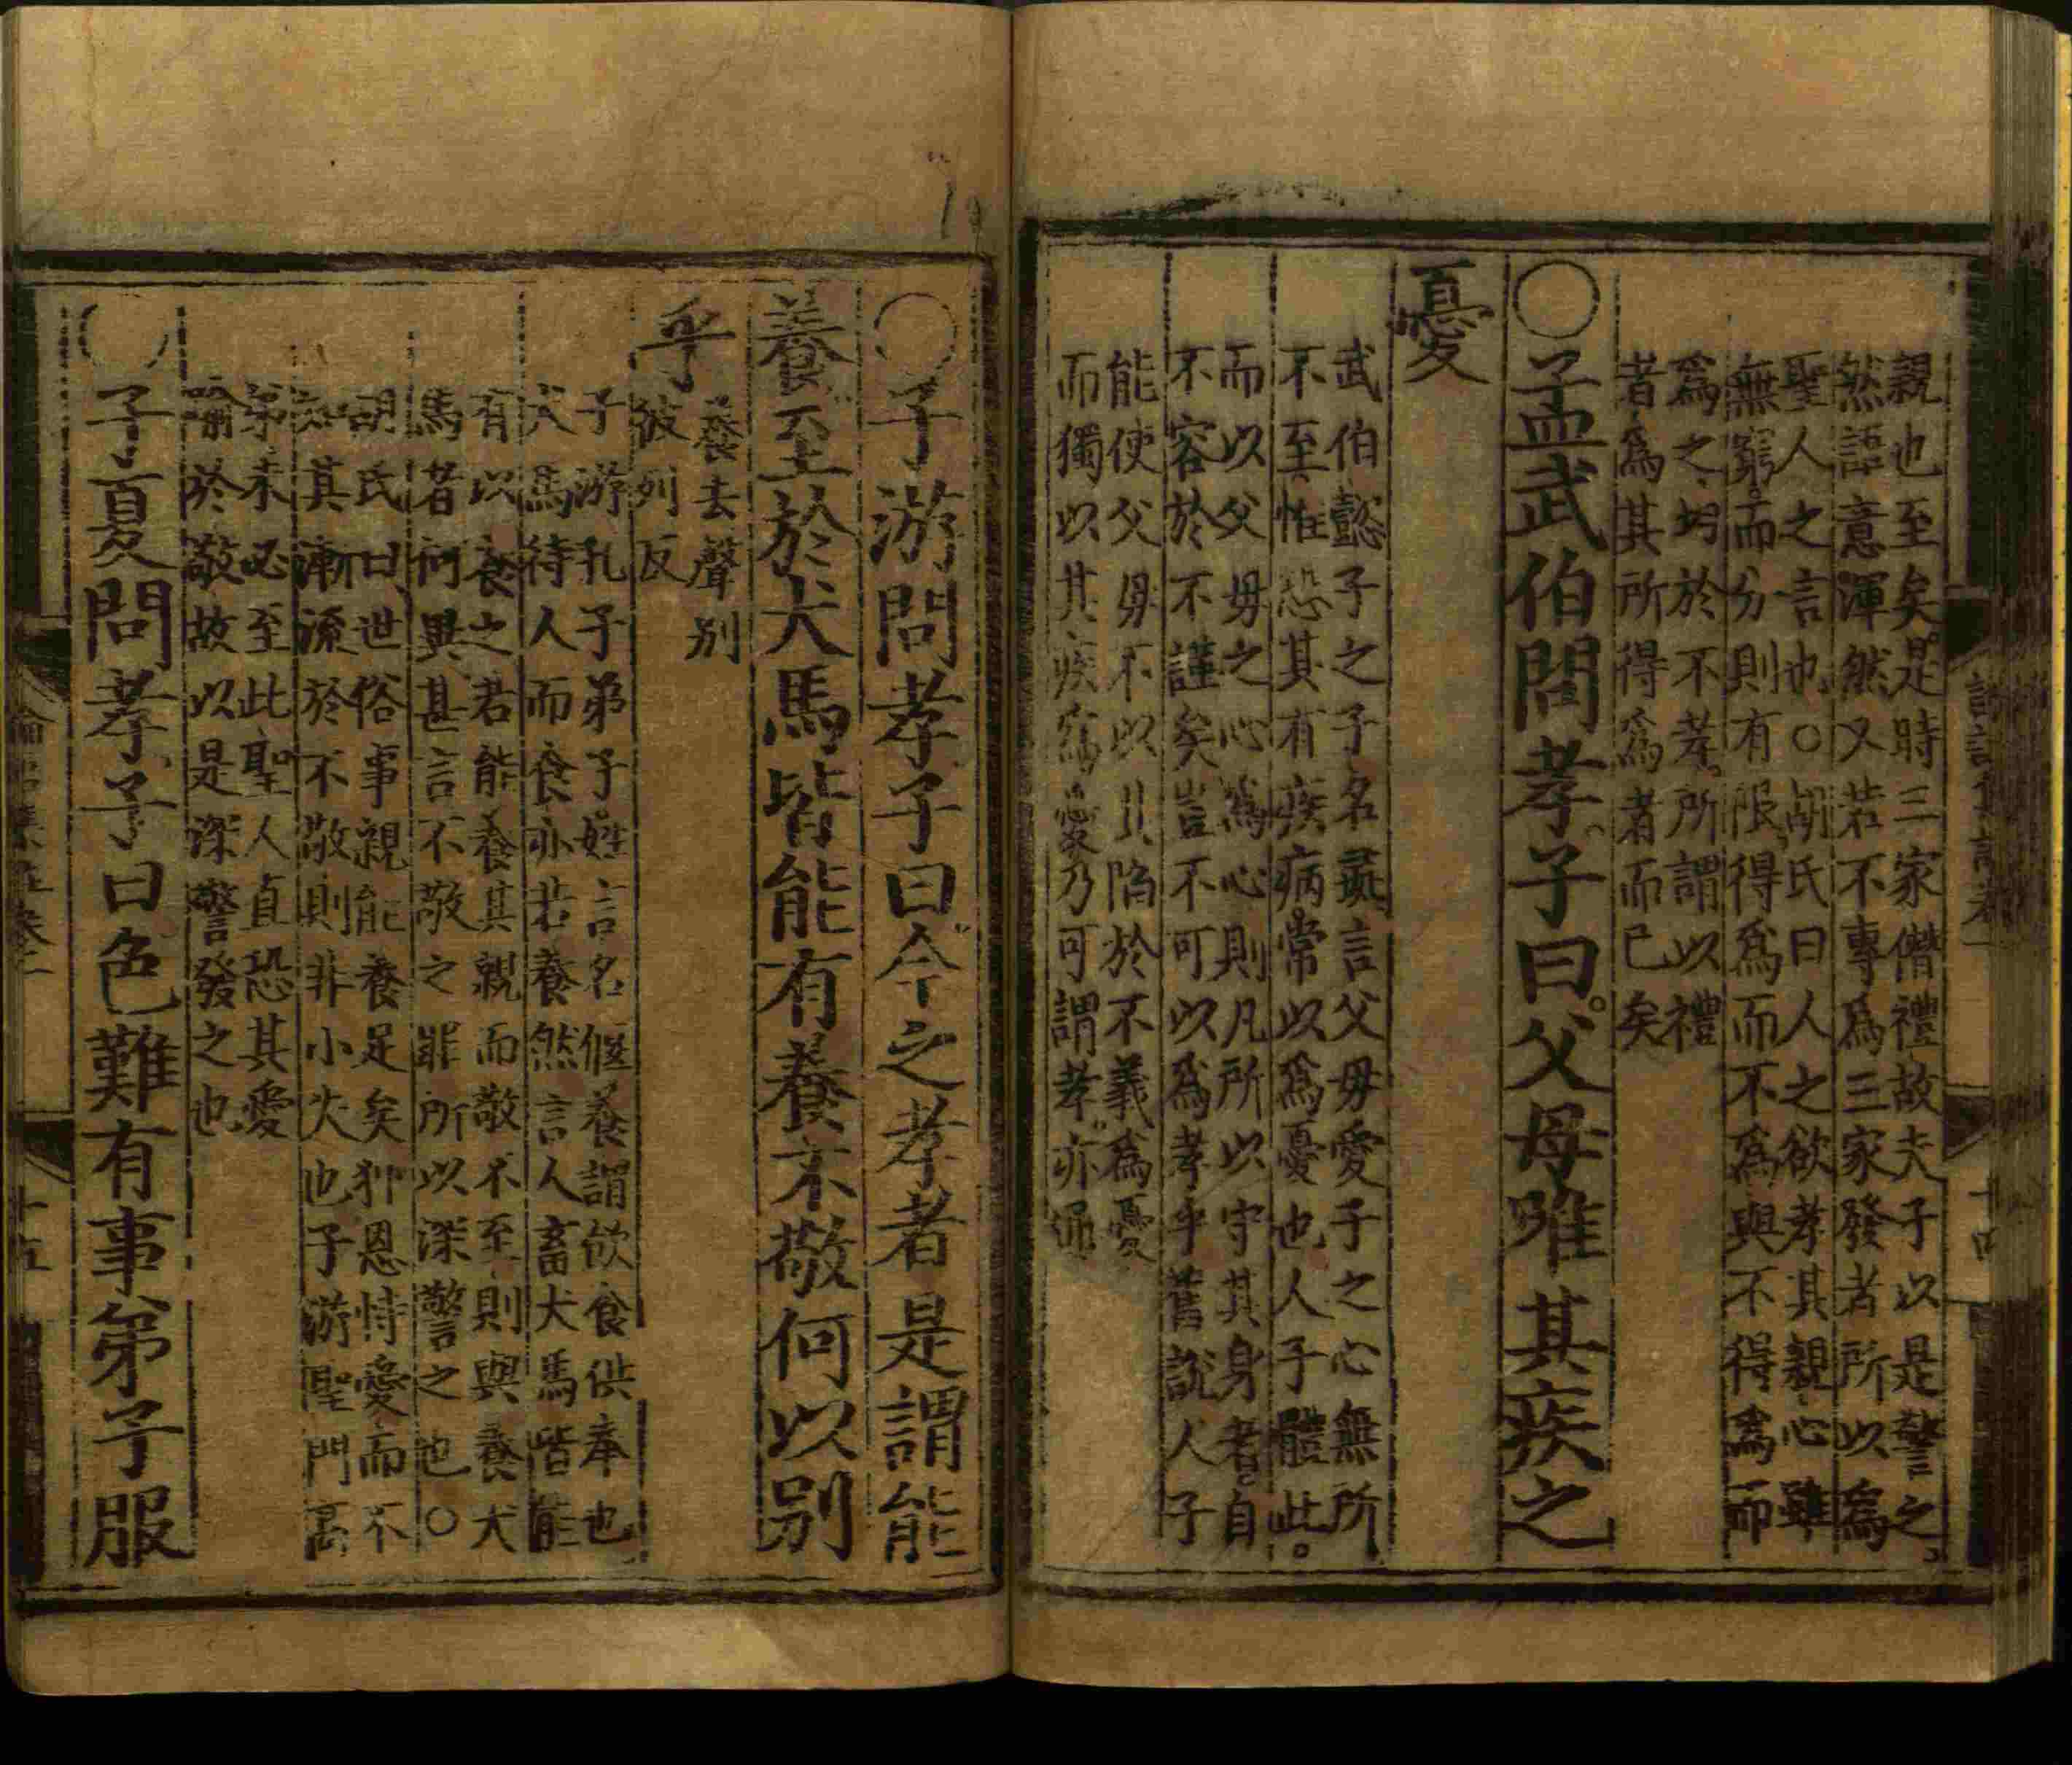 親也至矣是時三家僭禮故夫子以是警之
然語意渾然又若不專爲三家發者所以爲
聖人之言也○胡氏曰人之欲孝其親心雖
無窮而分則有限得爲而不爲與不得爲而
爲之均於不孝所謂以禮
者爲其所得爲者而已矣
○孟武伯問孝子曰父母唯其疾之
憂
武伯懿子之子名彘言父母愛子之心無所
不至惟恐其有疾病常以爲憂也人子體此
而以父母之心爲心則凡所以守其身者自
不容於不謹矣豈不可以爲孝乎舊說人子
能使父母不以其陷於不義爲憂
而獨以其疾爲憂乃可謂孝亦通
○子游問孝子曰今之孝者是謂能
養至於犬馬皆能有養不敬何以別
乎
養去聲別
彼列反
子游孔子弟子姓言名偃養謂飲食供奉也
犬馬待人而食亦若養然言人畜犬馬皆能
有以養之若能養其親而敬不至則與養犬
馬者何異甚言不敬之罪所以深警之也○
胡氏曰世俗事親能養足矣狎恩恃愛而不
知其漸流於不敬則非小失也子游聖門高
弟未必至此聖人直恐其愛
踰於敬故以是深警發之也
○子夏問孝子曰色難有事弟子服